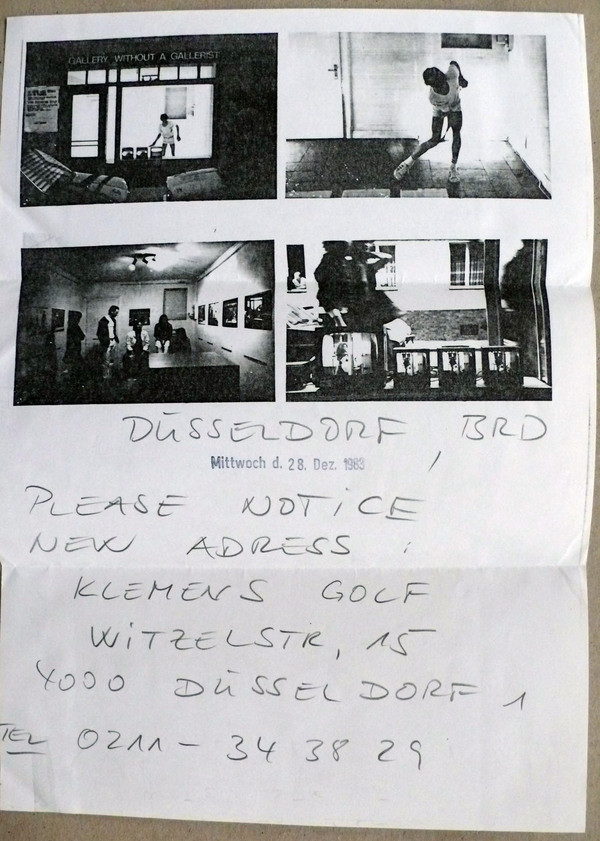 GALLERY WITHOUT A GALLERIST
DÜSSELDORF, BRD
Mittwoch d. 28. Dez. 1983
PLEASE NOTICE
NEW ADRESS :
KLEMENS GOLF
WITZELSTR, 15
4000 DÜSSELDORF 1
TEL 0211 - 34 38 29